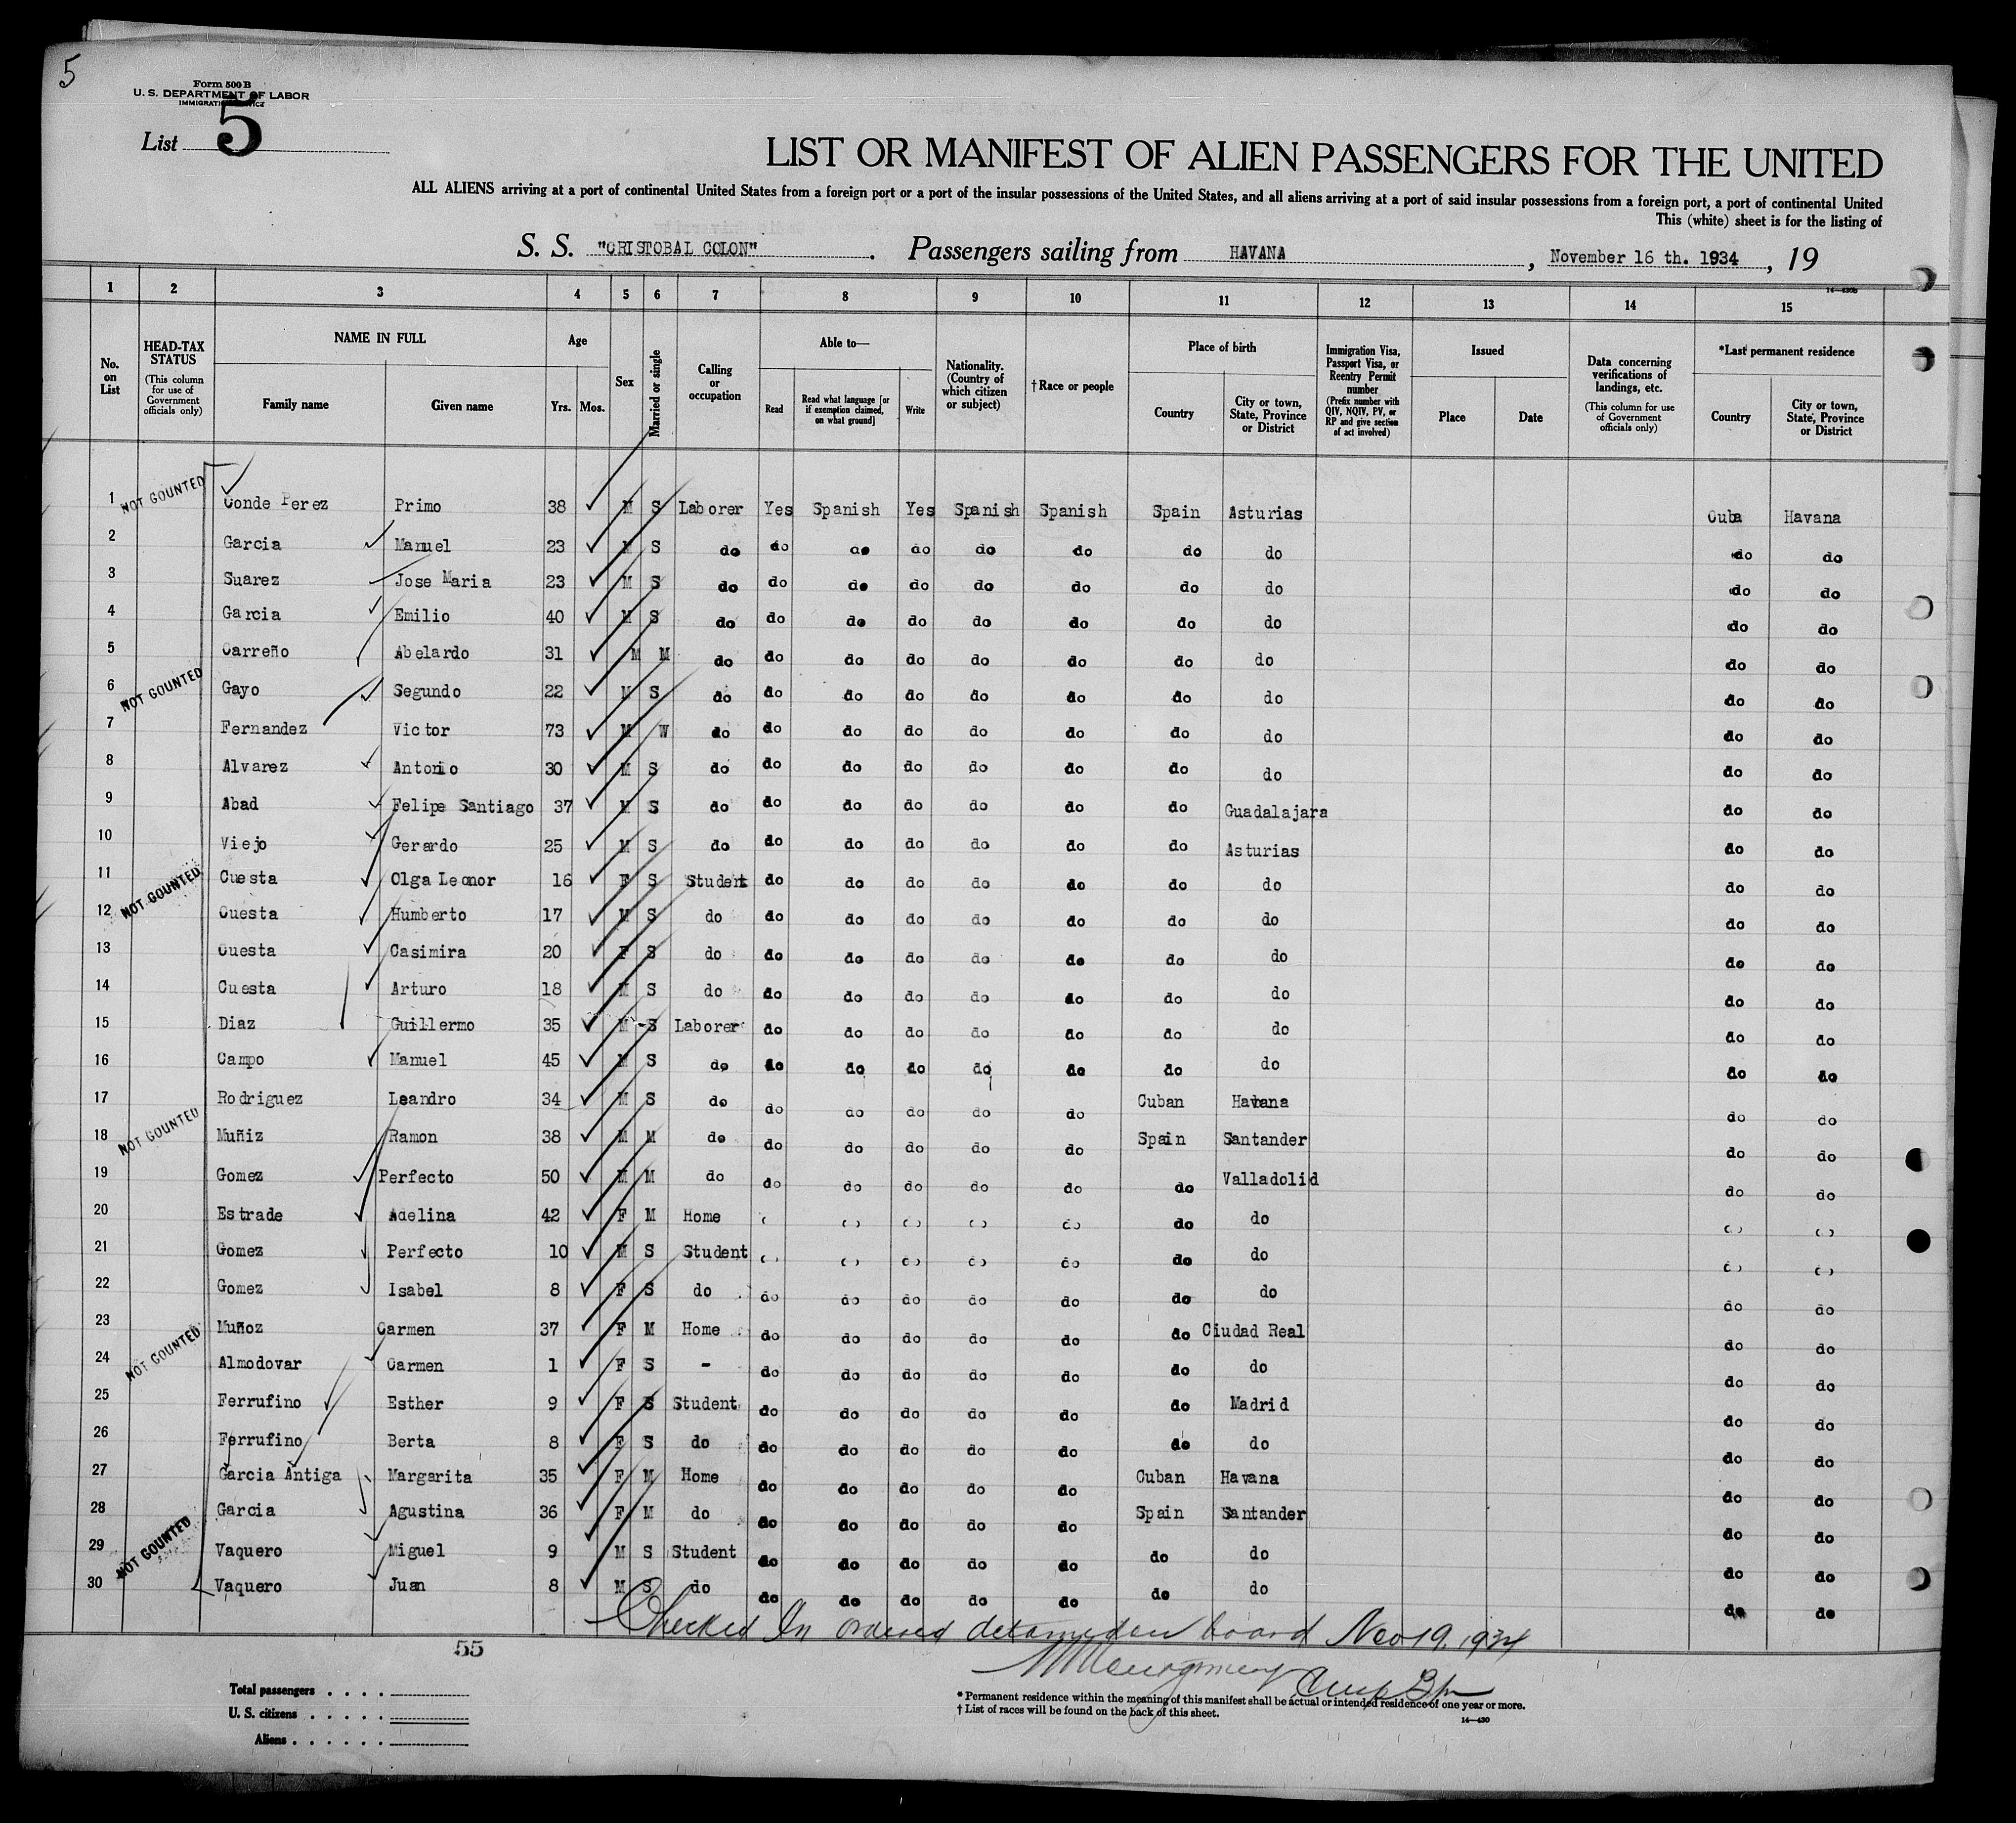 5
Form 500 B
U. S. DEPARTMENT OF LABOR
IMMIGRATION SERVICE
List 5
LIST OR MANIFEST OF ALIEN PASSENGERS FOR THE UNITED
ALL ALIENS arriving at a port of continental United States from a foreign port or a port of the insular possessions of the United States, and all aliens arriving at a port of said insular possessions from a foreign port, a port of continental United
This (white) sheet is for the listing of
S. S. "CRISTOBAL COLON". Passengers sailing from HAVANA, November 16 th. 1934, 19
1 2 3 4 5 6 7 8 9 10 11 12 13 14 15
No. on List
HEAD-TAX STATUS (This column for use of Government officials only)
NAME IN FULL Family name Given name
Age Yrs. Mos.
Sex
Married or single
Calling or occupation
Able to— Read Read what language [or if exemption claimed, on what ground] Write
Nationality. (Country of which citizen or subject)
†Race or people
Place of birth Country City or town, State, Province or District
Immigration Visa, Passport Visa, or Reentry Permit number (Prefix number with QIV, NQIV, PV, or RP and give section of act involved)
Issued Place Date
Data concerning verifications of landings, etc. (This column for use of Government officials only)
*Last permanent residence Country City or town, State, Province or District
1 NOT COUNTED Conde Perez Primo 38 M S Laborer Yes Spanish Yes Spanish Spanish Spain Asturias Cuba Havana
2 Garcia Manuel 23 M S do do do do do do do do do do
3 Suarez Jose Maria 23 M S do do do do do do do do do do
4 Garcia Emilio 40 M S do do do do do do do do do do
5 Carreño Abelardo 31 M M do do do do do do do do do do
6 NOT COUNTED Gayo Segundo 22 M S do do do do do do do do do do
7 Fernandez Victor 73 M W do do do do do do do do do do
8 Alvarez Antonio 30 M S do do do do do do do do do do
9 Abad Felipe Santiago 37 M S do do do do do do do Guadalajara do do
10 Viejo Gerardo 25 M S do do do do do do do Asturias do do
11 Cuesta Olga Leonor 16 F S Student do do do do do do do do do
12 NOT COUNTED Cuesta Humberto 17 M S do do do do do do do do do do
13 Cuesta Casimira 20 F S do do do do do do do do do do
14 Cuesta Arturo 18 M S do do do do do do do do do do
15 Diaz Guillermo 35 M S Laborer do do do do do do do do do
16 Campo Manuel 45 M S do do do do do do do do do do
17 Rodriguez Leandro 34 M S do do do do do do Cuban Havana do do
18 NOT COUNTED Muñiz Ramon 38 M M do do do do do do Spain Santander do do
19 Gomez Perfecto 50 M M do do do do do do do Valladolid do do
20 Estrade Adelina 42 F M Home do do do do do do do do do
21 Gomez Perfecto 10 M S Student do do do do do do do do do
22 Gomez Isabel 8 F S do do do do do do do do do do
23 Muñoz Carmen 37 F M Home do do do do do do Ciudad Real do do
24 NOT COUNTED Almodovar Carmen 1 F S - do do do do do do do do do
25 Ferrufino Esther 9 F S Student do do do do do do Madrid do do
26 Ferrufino Berta 8 F S do do do do do do do do do do
27 Garcia Antiga Margarita 35 F M Home do do do do do Cuban Havana do do
28 Garcia Agustina 36 F M do do do do do do Spain Santander do do
29 NOT COUNTED Vaquero Miguel 9 M S Student do do do do do do do do do
30 Vaquero Juan 8 M S do do do do do do do do do do
Checked In ordered detained board Nov 19, 1934
55
Total passengers
U. S. citizens
Aliens
* Permanent residence within the meaning of this manifest shall be actual or intended residence of one year or more.
† List of races will be found on the back of this sheet.
14—430